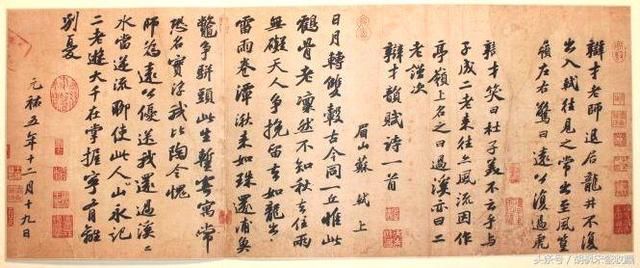 辯才老師退居龍井不復
出入軾往見之常出至風篁
嶺左右驚曰遠公復過虎
辯才笑曰杜子美不云乎與
子成二老來往亦風流因作
亭嶺上名之曰過溪亦曰二
老謹次
辯才韻賦詩一首
眉山蘇軾上
日月轉雙轂古今同一丘惟此
鶴骨老凜然不知秋去住兩
無礙天人爭挽留去如龍出
雷雨卷潭湫來如珠還浦魚
鼈爭駢頭此生暫寄寓常
恐名實浮我比陶令愧
師為遠公優送我還過溪〻
水當逆流聊使此人山永記
二老遊大千在掌握寧有離
別憂
元祐五年十二月十九日
头条号